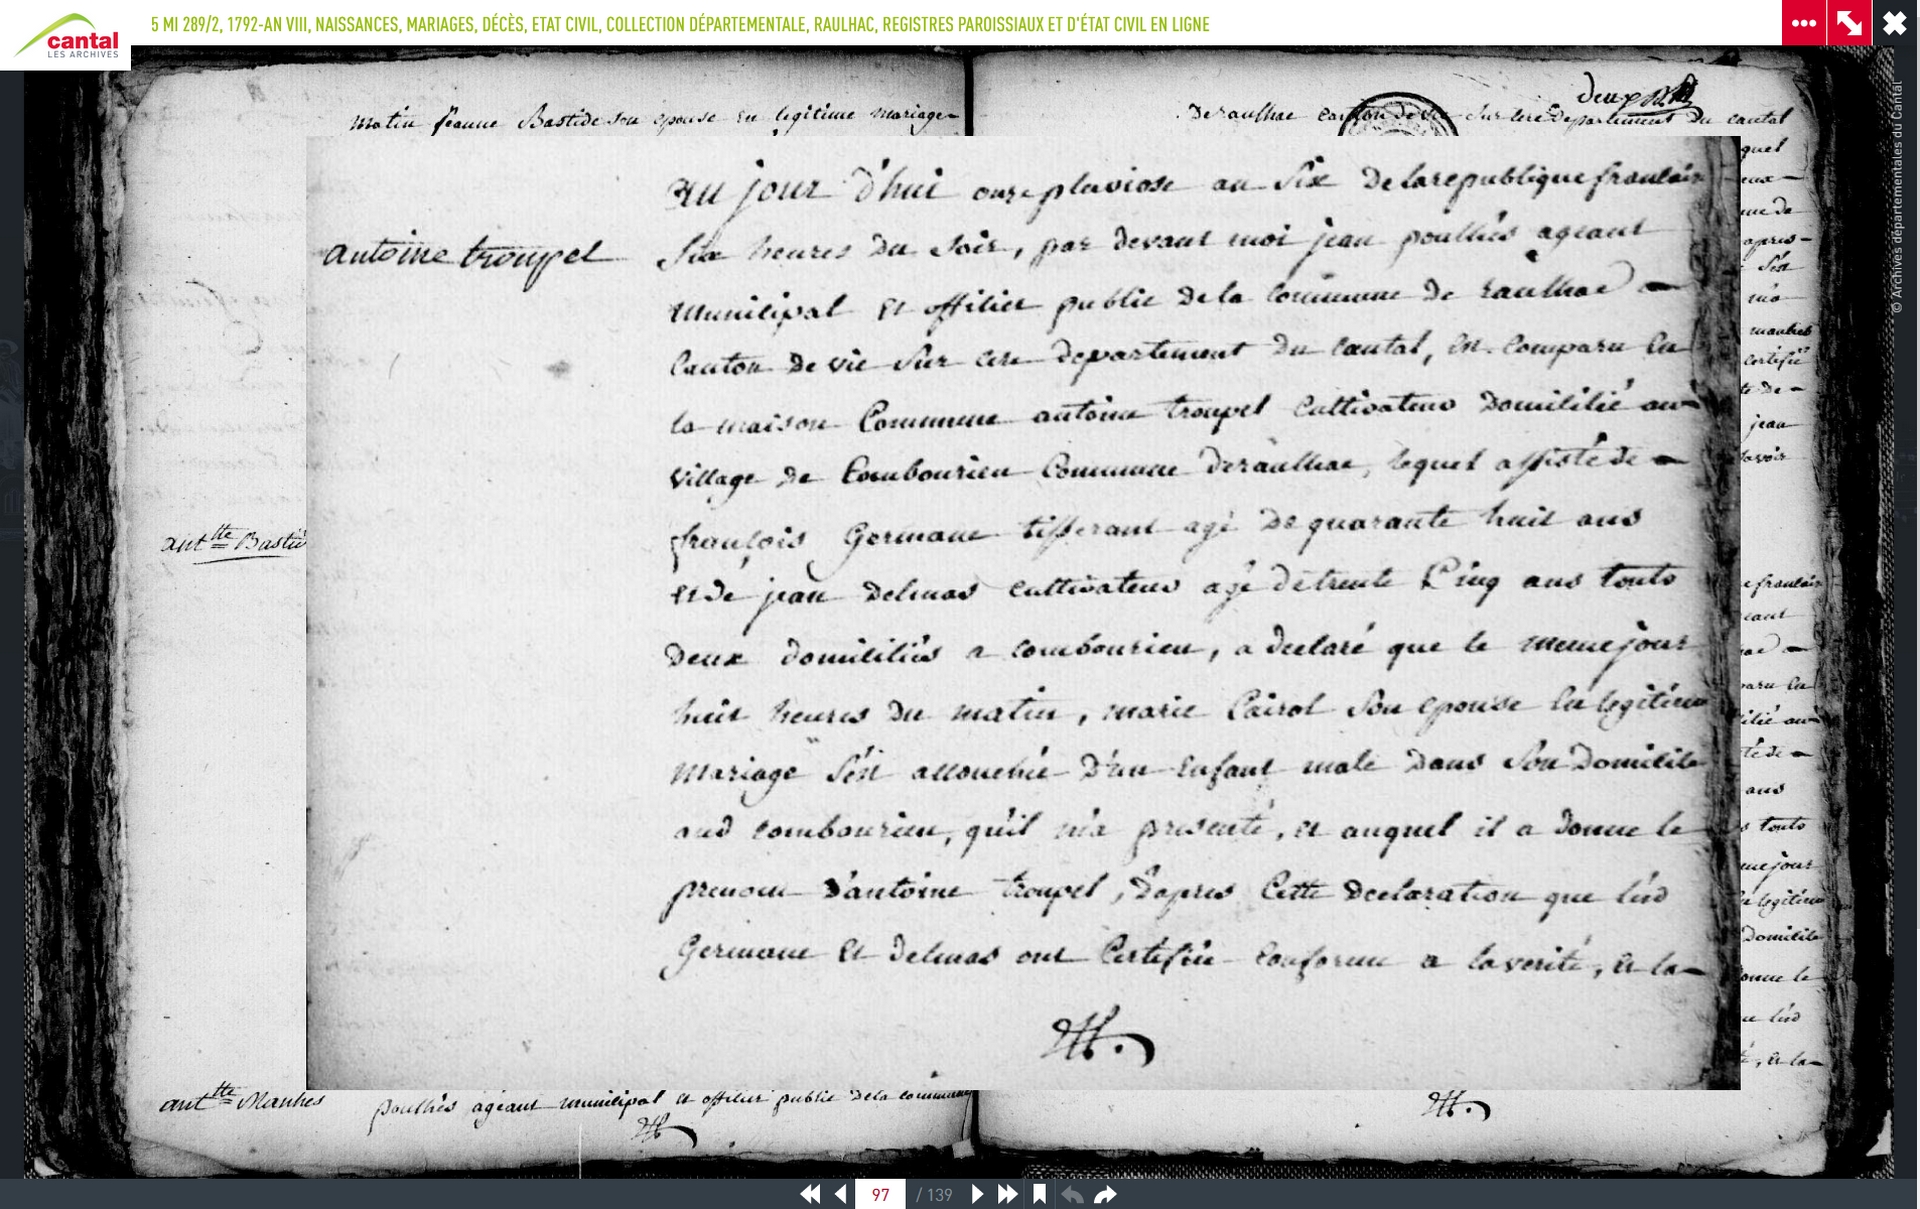 cantal
LES ARCHIVES
5 MI 289/2, 1792-AN VIII, NAISSANCES, MARIAGES, DÉCÈS, ETAT CIVIL, COLLECTION DÉPARTEMENTALE, RAULHAC, REGISTRES PAROISSIAUX ET D'ÉTAT CIVIL EN LIGNE
matin jeanne Bastide son epouse en legitime mariage
deux
De raulhac canton de vic sur cere departement du cantal
antoine troupel
au jour d'hui onze pluviose an six de la republique francais
six heures du soir, par devant moi jean poulhès ageant
municipal et officier public de la commune de raulhac
canton de vic sur cere departement du cantal, est comparu en
la maison commune antoine troupel cultivateur domicilié au
village de combourieu commune de raulhac, lequel assisté de
françois Germane tisserant agé de quarante huit ans
et de jean delmas cultivateur agé de trente cinq ans touts
deux domiciliés a combourieu, a declaré que le meme jour
huit heures du matin, marie Cairol son epouse en legitime
mariage s'est accouchée d'un enfant male dans son domicile
aud combourieu, qu'il m'a presenté, et auquel il a donné le
prenom d'antoine troupel, d'apres cette declaration que lesd
Germane et delmas ont certifiée conforme a la verité, et la
ant^tte Bastid
ant^tte Manhes
poulhès ageant municipal et officier public de la commune
quel
apres
jean
savoir
ans
touts
domicile
donne le
© Archives départementales du Cantal
97 / 139